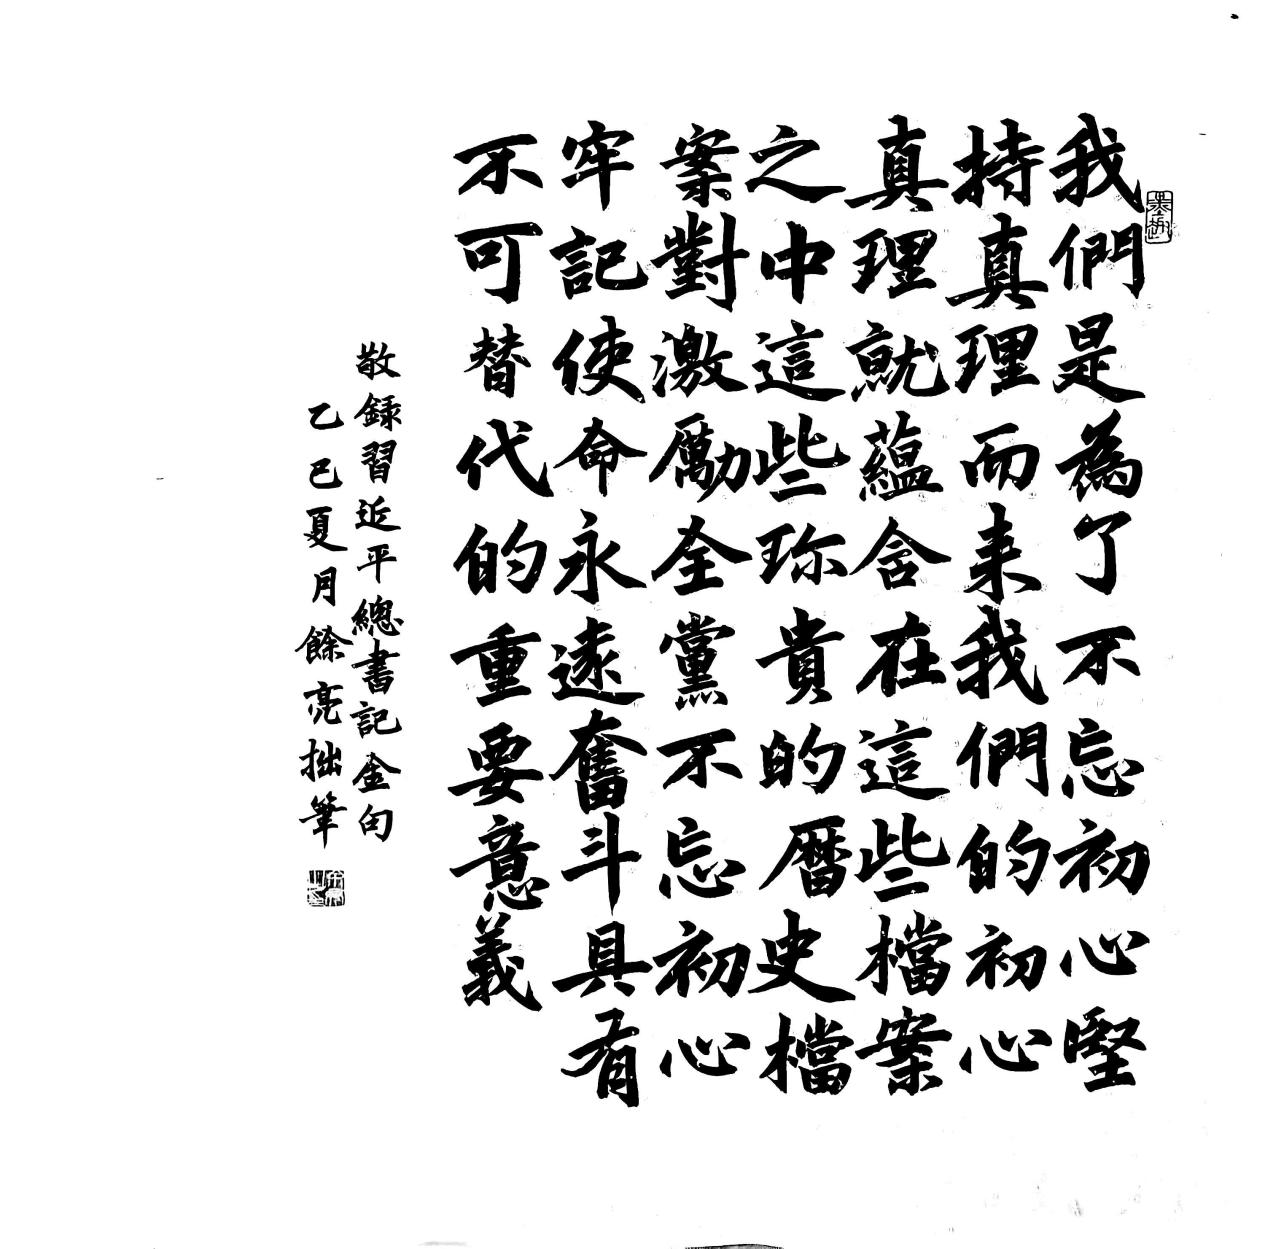 我們是為了不忘初心堅
持真理而来我們的初心
真理就蘊含在這些檔案
之中這些珎貴的曆史檔
案對激勵全黨不忘初心
牢記使命永遠奮斗具有
不可替代的重要意義
敬録習近平總書記金句
乙巳夏月餘亮拙筆
墨趣